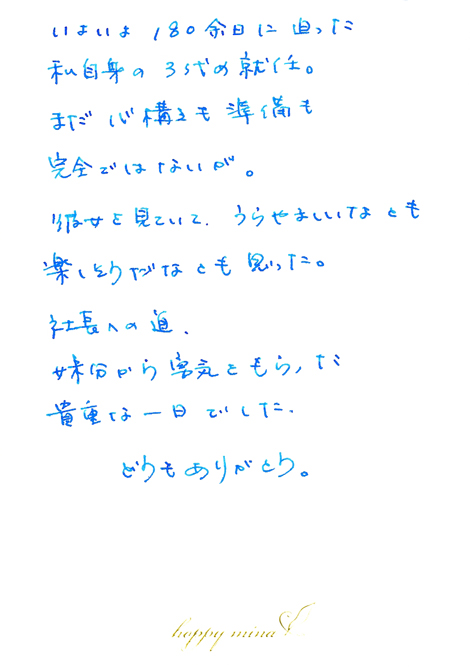 いよいよ180余日に迫った
私自身の3代めの就任。
まだ心構えも準備も
完全ではないが。
彼女を見ていて、うらやましいなとも
楽しそうだなとも思った。
社長への道、
妹分から勇気をもらった
貴重な一日でした。
どうもありがとう。
happy mina